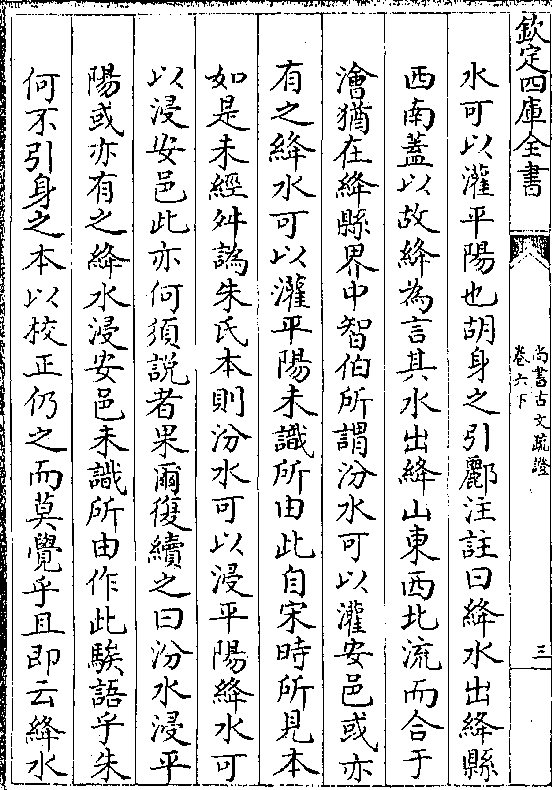 欽定四庫全書
尚書古文疏證
卷六下
三
水可以灌平陽也胡身之引酈注註曰絳水出絳縣
西南蓋以故絳為言其水出絳山東西北流而合于
澮猶在絳縣界中智伯所謂汾水可以灌安邑或亦
有之絳水可以灌平陽未識所由此自宋時所見本
如是未經舛譌朱氏本則汾水可以浸平陽絳水可
以浸安邑此亦何須說者果爾復續之曰汾水浸平
陽或亦有之絳水浸安邑未識所由作此騃語乎朱
何不引身之本以校正仍之而莫覺乎且即云絳水